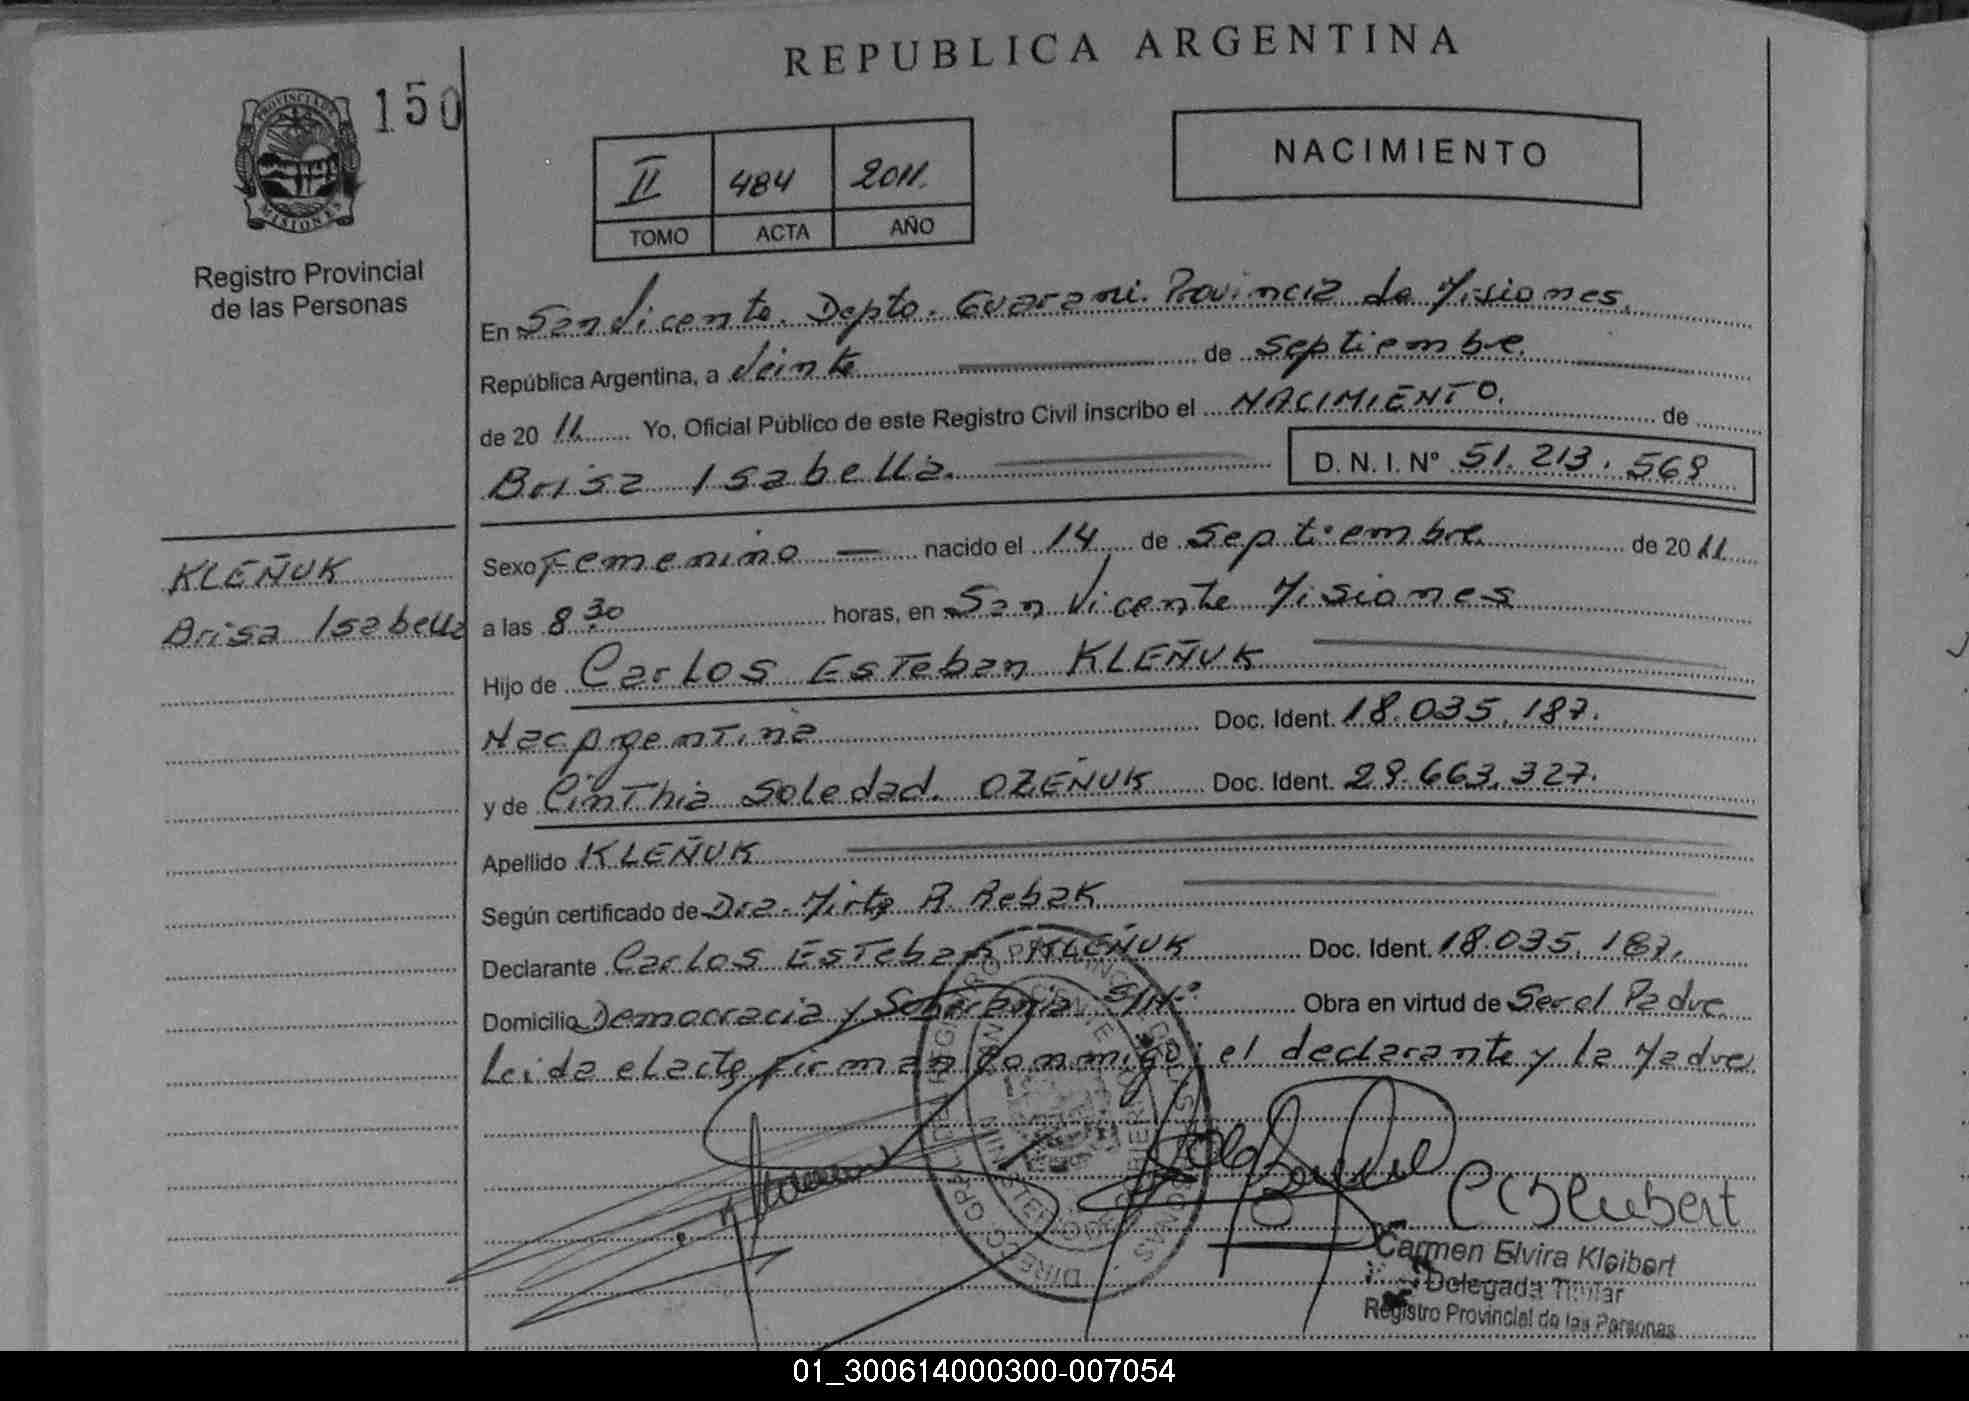 REPUBLICA ARGENTINA
150
PROVINCIA DE
MISIONES
Registro Provincial
de las Personas
II 484 2011.
TOMO ACTA AÑO
NACIMIENTO
En San Vicente. Depto. Guarani. Provincia de Misiones.
República Argentina, a Veinte de Septiembre.
de 2011. Yo, Oficial Público de este Registro Civil inscribo el NACIMIENTO. de
Brisa Isabella. D. N. I. Nº 51.213.569
KLEÑUK
Brisa Isabella
Sexo Femenino — nacido el 14 de Septiembre de 2011
a las 8 30 horas, en San Vicente Misiones
Hijo de Carlos Esteban KLEÑUK
Nac Argentina Doc. Ident. 18.035.187.
y de Cinthia Soledad. OZEÑUK Doc. Ident. 29.663.327.
Apellido KLEÑUK
Según certificado de Dra. Mirta R Rebak
Declarante Carlos Esteban KLEÑUK Doc. Ident. 18.035.187.
Domicilio Democracia y Soberania S/Nº Obra en virtud de Ser el Padre
Leida el acta firman conmigo; el declarante y la Madre
Carmen Elvira Kleibert
Delegada Titular
Registro Provincial de las Personas
01_300614000300-007054